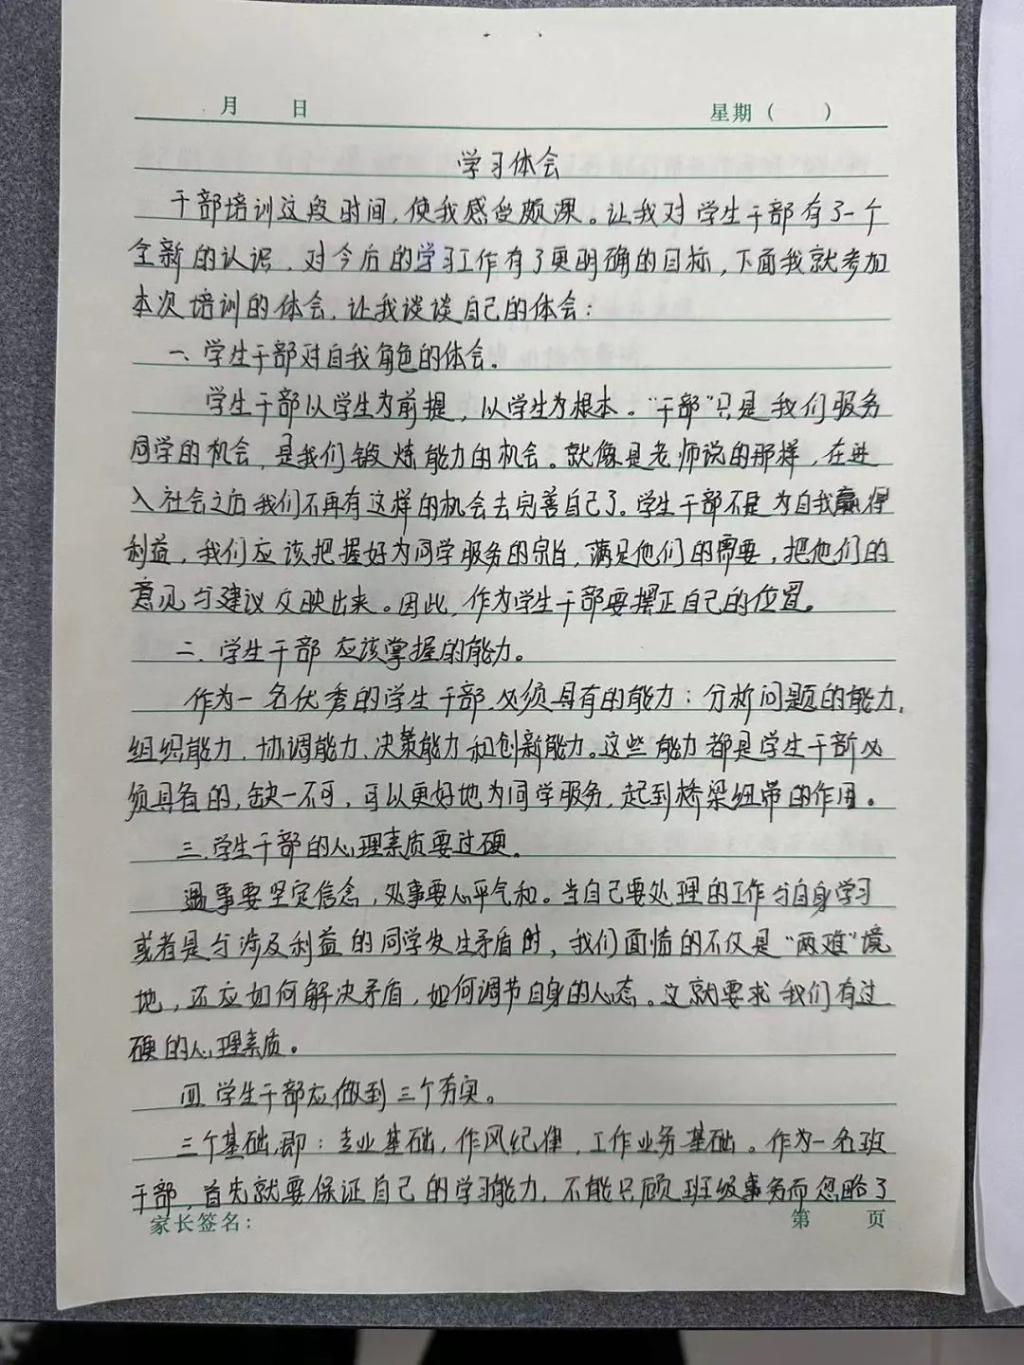 月 日 星期（ ）
学习体会
干部培训这段时间,使我感受颇深。让我对学生干部有了一个
全新的认识,对今后的学习工作有了更明确的目标,下面我就参加
本次培训的体会,让我谈谈自己的体会:
一、学生干部对自我角色的体会。
学生干部以学生为前提,以学生为根本。"干部"只是我们服务
同学的机会,是我们锻炼能力的机会。就像是老师说的那样,在进
入社会之后我们不再有这样的机会去完善自己了。学生干部不是为自我赢得
利益,我们应该把握好为同学服务的宗旨,满足他们的需要,把他们的
意见与建议反映出来。因此,作为学生干部要摆正自己的位置。
二、学生干部应该掌握的能力。
作为一名优秀的学生干部,必须具有的能力:分析问题的能力,
组织能力、协调能力、决策能力和创新能力。这些能力都是学生干部必
须具备的,缺一不可,可以更好地为同学服务,起到桥梁纽带的作用。
三、学生干部的心理素质要过硬。
遇事要坚定信念,处事要心平气和。当自己要处理的工作与自身学习
或者是与涉及利益的同学发生矛盾时,我们面临的不仅是"两难"境
地,还应如何解决矛盾,如何调节自身的心态。这就要求我们有过
硬的心理素质。
四、学生干部应做到三个夯实。
三个基础,即:专业基础,作风纪律,工作业务基础。作为一名班
干部,首先就要保证自己的学习能力,不能只顾班级事务而忽略了
家长签名: 第 页